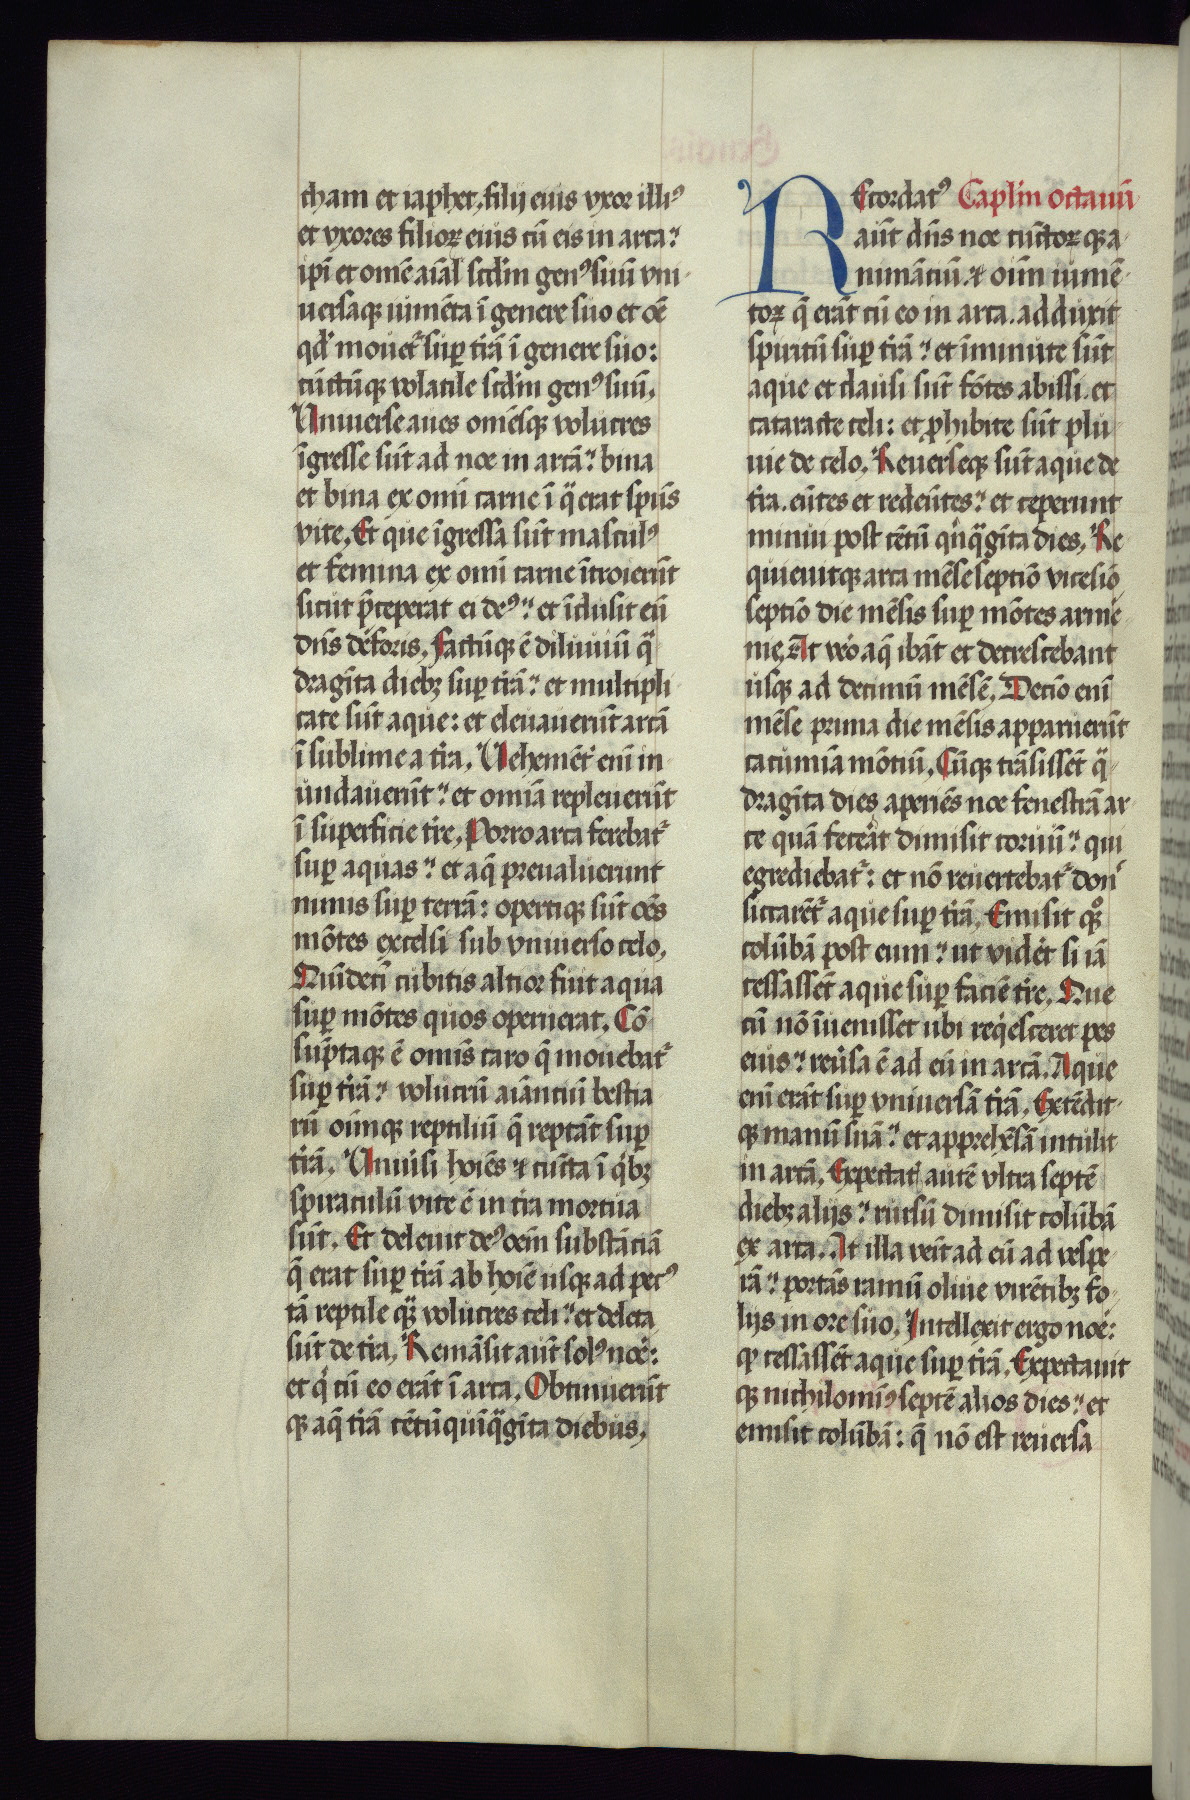 cham et iaphet, filij eius vxor illiꝰ
et vxores filioꝝ eius cū eis in arca:
ip̄i et om̄e aīal scd̄m genꝰ suū vni
uersaqꝫ iumēta ī genere suo et oē
qd̓ mouet᷑ suꝑ t̄rā ī genere suo:
cūctūqꝫ volatile scd̄m genꝰ suū,
Vniuerse aues om̄esqꝫ volucres
īgresse sūt ad noe in arcā: bina
et bina ex om̄i carne ī q̈ erat sp̄us
vite, Et que īgressa sūt masculꝰ
et femina ex om̄i carne ītroierūt
sicut p̄ceperat ei deꝰ: et īclusit eū
dn̄s deforis, Factūqꝫ ē diluuiū q̈
dragīta diebꝫ suꝑ t̄rā: et multipli
cate sūt aque: et eleuauerūt arcā
ī sublime a t̄ra, Vehemēt̓ enī in
undauerūt: et om̄ia repleuerūt
ī superficie t̄re, Porro arca ferebat᷑
suꝑ aquas: et aq̄ preualuerunt
nimis suꝑ terrā: opertiqꝫ sūt oēs
mōtes excelsi sub vniuerso celo,
Quīdecī cubitis altior fuit aqua
suꝑ mōtes quos operuerat, Cō
sūptaqꝫ ē omīs caro q̄ mouebat᷑
suꝑ t̄rā: volucrū aīantiū bestia
rū oīmqꝫ reptiliū q̄ reptāt suꝑ
t̄rā, Vniuersi hoīes ⁊ cūcta ī qͥbꝫ
spiraculū vite ē in t̄ra mortua
sūt, Et deleuit deꝰ oēm substāciā
q̄ erat suꝑ t̄rā ab hoīe usqꝫ ad pecꝰ
tā reptile qͣꝫ volucres celi: et deleta
sūt de t̄ra, Remāsit aūt solꝰ noe:
et qͥ cū eo erāt ī arca, Obtinuerūt
qꝫ aq̄ t̄rā cētū quīq̈gīta diebus,
REcordatꝰ Caplīm octauū
aūt dn̄s noe cūctoꝝ qꝫ a
nimāciū ⁊ oīm iumē
toꝝ q̄ erāt cū eo in arca, adduxit
spiritū suꝑ t̄rā: et īminute sūt
aque et clausi sūt fōtes abissi et
cataracte celi: et ꝓhibite sūt plu
uie de celo, Reuerseqꝫ sūt aque de
t̄ra, eūtes et redeūtes: et ceperunt
minui post cētū qͥnq̈gīta dies, Re
quieuitqꝫ arca mēse septīo vicesīo
septīo die mēsis suꝑ mōtes arme
nie, At v̓o aq̄ ibāt et decrescebant
usqꝫ ad decimū mēsē, Decīo enī
mēse prima die mēsis apparuerūt
cacumīa mōtiū, Cūqꝫ trāsissēt q̈
dragīta dies aperiēs noe fenestrā ar
ce quā fecerat dimisit coruū: qui
egrediebat᷑: et nō reuertebat᷑ donͨ
siccarēt᷑ aque suꝑ t̄rā, Emisit qͦꝫ
colūbā post eum: ut vidēt si iā
cessassēt aque suꝑ faciē t̄re, Que
cū nō īuenisset ubi reqͥesceret pes
eius: reūsa ē ad eū in arcā, Aque
enī erāt suꝑ vniuersā t̄rā, Extēdit
qꝫ manū suā: et apprehēsā intulit
in arcā, Expectatꝭ autē vltra septē
diebꝫ alijs: rursū dimisit colūbā
ex arca, At illa venīt ad eū ad vespe
rā: portās ramū oliue virētibꝫ fo
lijs in ore suo, Intellexit ergo noe:
ꝙ cessassēt aque suꝑ t̄rā, Expectauit
qꝫ nichilominꝰ septē alios dies: et
emisit colūbā: q̄ nō est reuersa